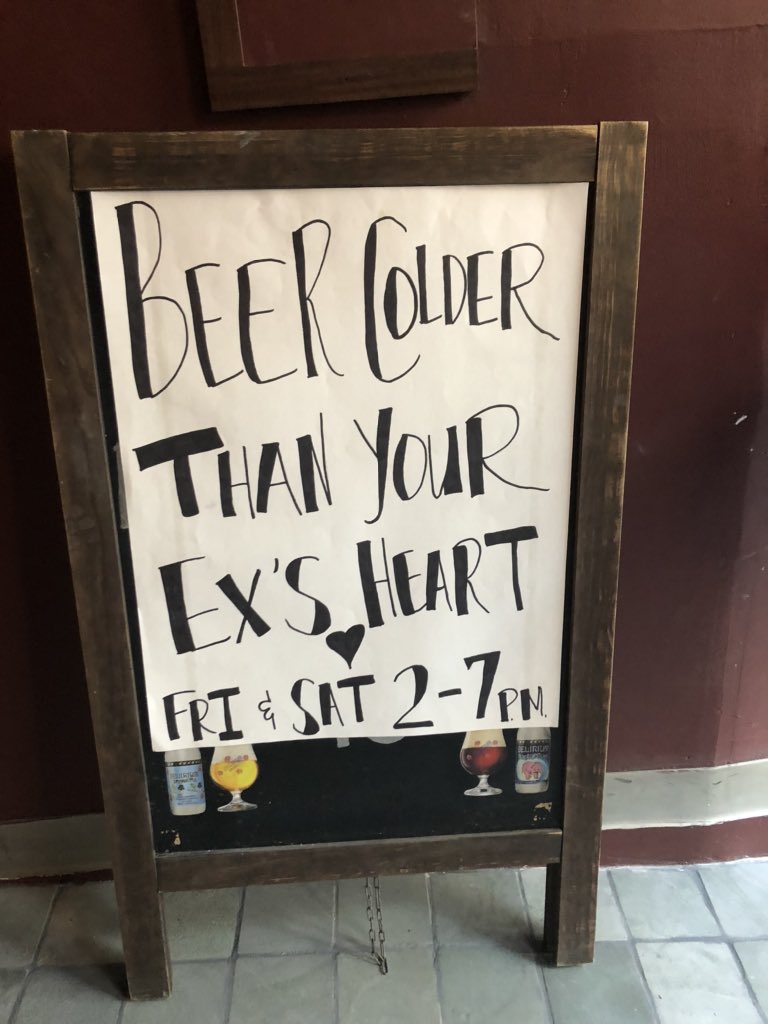 BEER COLDER
THAN YOUR
EX'S HEART
FRI & SAT 2-7 P.M.
DELIRIUM
DELIRIUM